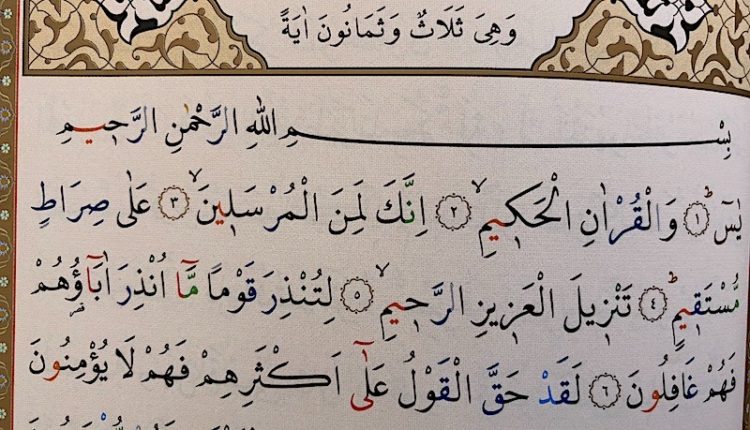 وَهِىَ ثَلَاثٌ وَثَمَانُونَ اٰيَةً
بِسْمِ اللهِ الرَّحْمٰنِ الرَّحٖيمِ
يٰسٓ ﴿١﴾ وَالْقُرْاٰنِ الْحَكٖيمِ ﴿٢﴾ اِنَّكَ لَمِنَ الْمُرْسَلٖينَ ﴿٣﴾ عَلٰى صِرَاطٍ
مُسْتَقٖيمٍ ﴿٤﴾ تَنْزٖيلَ الْعَزٖيزِ الرَّحٖيمِ ﴿٥﴾ لِتُنْذِرَ قَوْمًا مَٓا اُنْذِرَ اٰبَٓاؤُ۬هُمْ
فَهُمْ غَافِلُونَ ﴿٦﴾ لَقَدْ حَقَّ الْقَوْلُ عَلٰٓى اَكْثَرِهِمْ فَهُمْ لَا يُؤْمِنُونَ